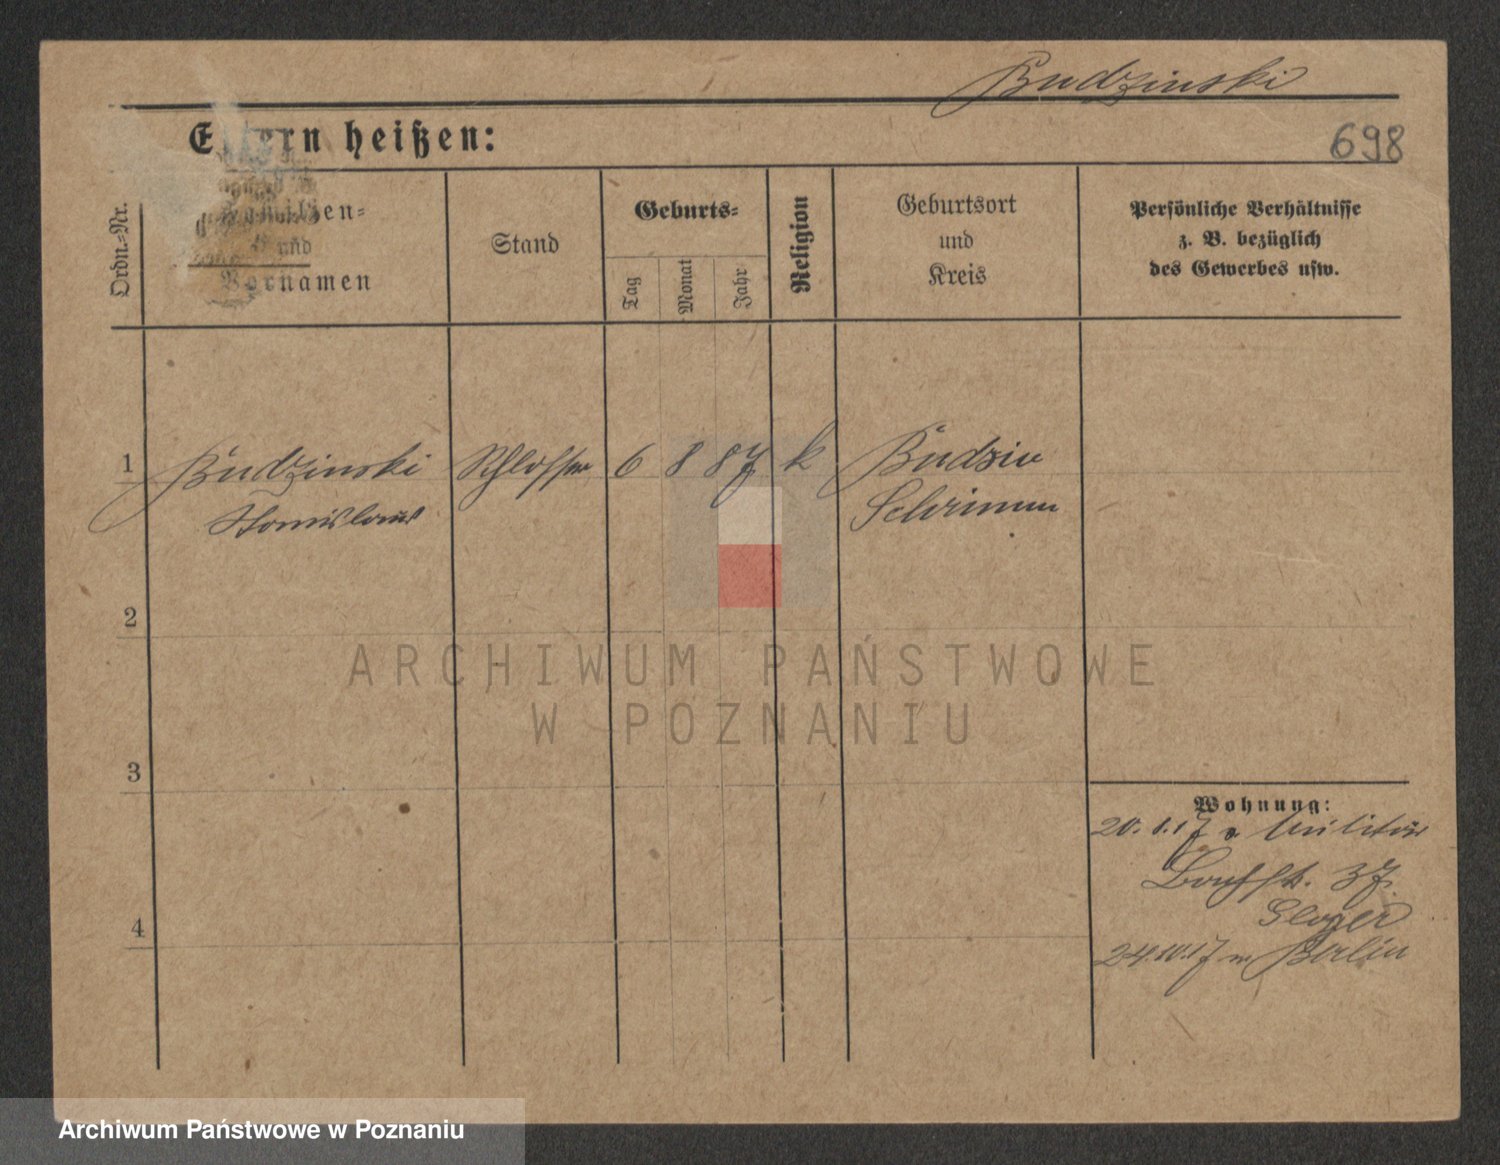 Budzinski
698
Eltern heißen:
Ordn.=Nr.
Familien=
und
Vornamen
Stand
Geburts=
Tag
Monat
Jahr
Religion
Geburtsort
und
Kreis
Persönliche Verhältnisse
z. B. bezüglich
des Gewerbes usw.
1 Budzinski Schlosser 6 8 87 k Budzin
Stanislaus Schrimm
2
3
4
Wohnung:
20.1.17 v. Militär
37.
Gloger
24.10.17 n Berlin
ARCHIWUM PAŃSTWOWE
W POZNANIU
Archiwum Państwowe w Poznaniu